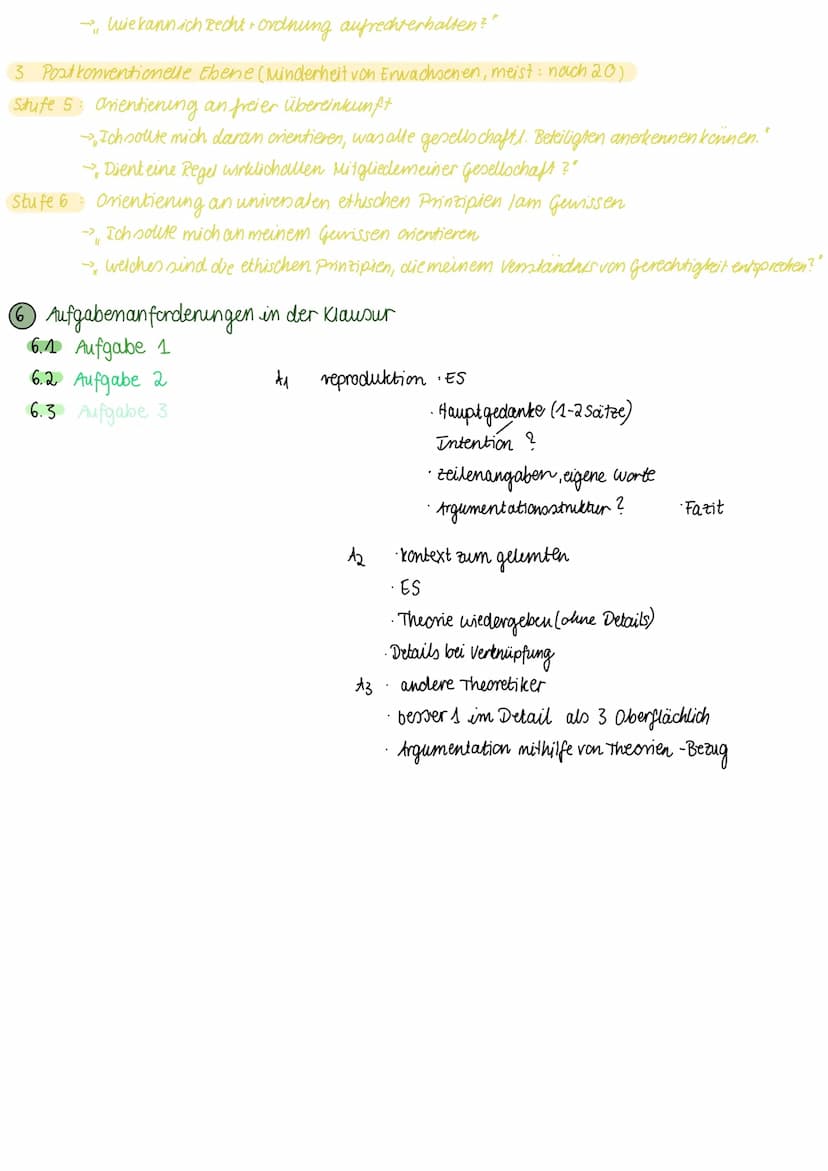 →„ Wie kann ich Recht + Ordnung aufrechterhalten?"
3 Postkonventionelle Ebene (Minderheit von Erwachsenen, meist: nach 20)
Stufe 5: Orientierung an freier Übereinkunft
→„Ich sollte mich daran orientieren, was alle gesellschaftl. Beteiligten anerkennen können."
→„ Dient eine Regel wirklich allen Mitglieder meiner Gesellschaft?"
Stufe 6: Orientierung an universalen ethischen Prinzipien / am Gewissen
→„ Ich sollte mich an meinem Gewissen orientieren
→„ Welches sind die ethischen Prinzipien, die meinem Verständnis von Gerechtigkeit entsprechen?"
6 Aufgabenanforderungen in der Klausur
6.1 Aufgabe 1
6.2 Aufgabe 2
6.3 Aufgabe 3
A1 reproduktion · ES
· Hauptgedanke (1-2 Sätze)
Intention ?
· Zeilenangaben, eigene Worte
· Argumentationsstruktur? · Fazit
A2 · Kontext zum gelernten
· ES
· Theorie wiedergeben (ohne Details)
· Details bei Verknüpfung
A3 · andere Theoretiker
· besser 1 im Detail als 3 Oberflächlich
· Argumentation mithilfe von Theorien - Bezug